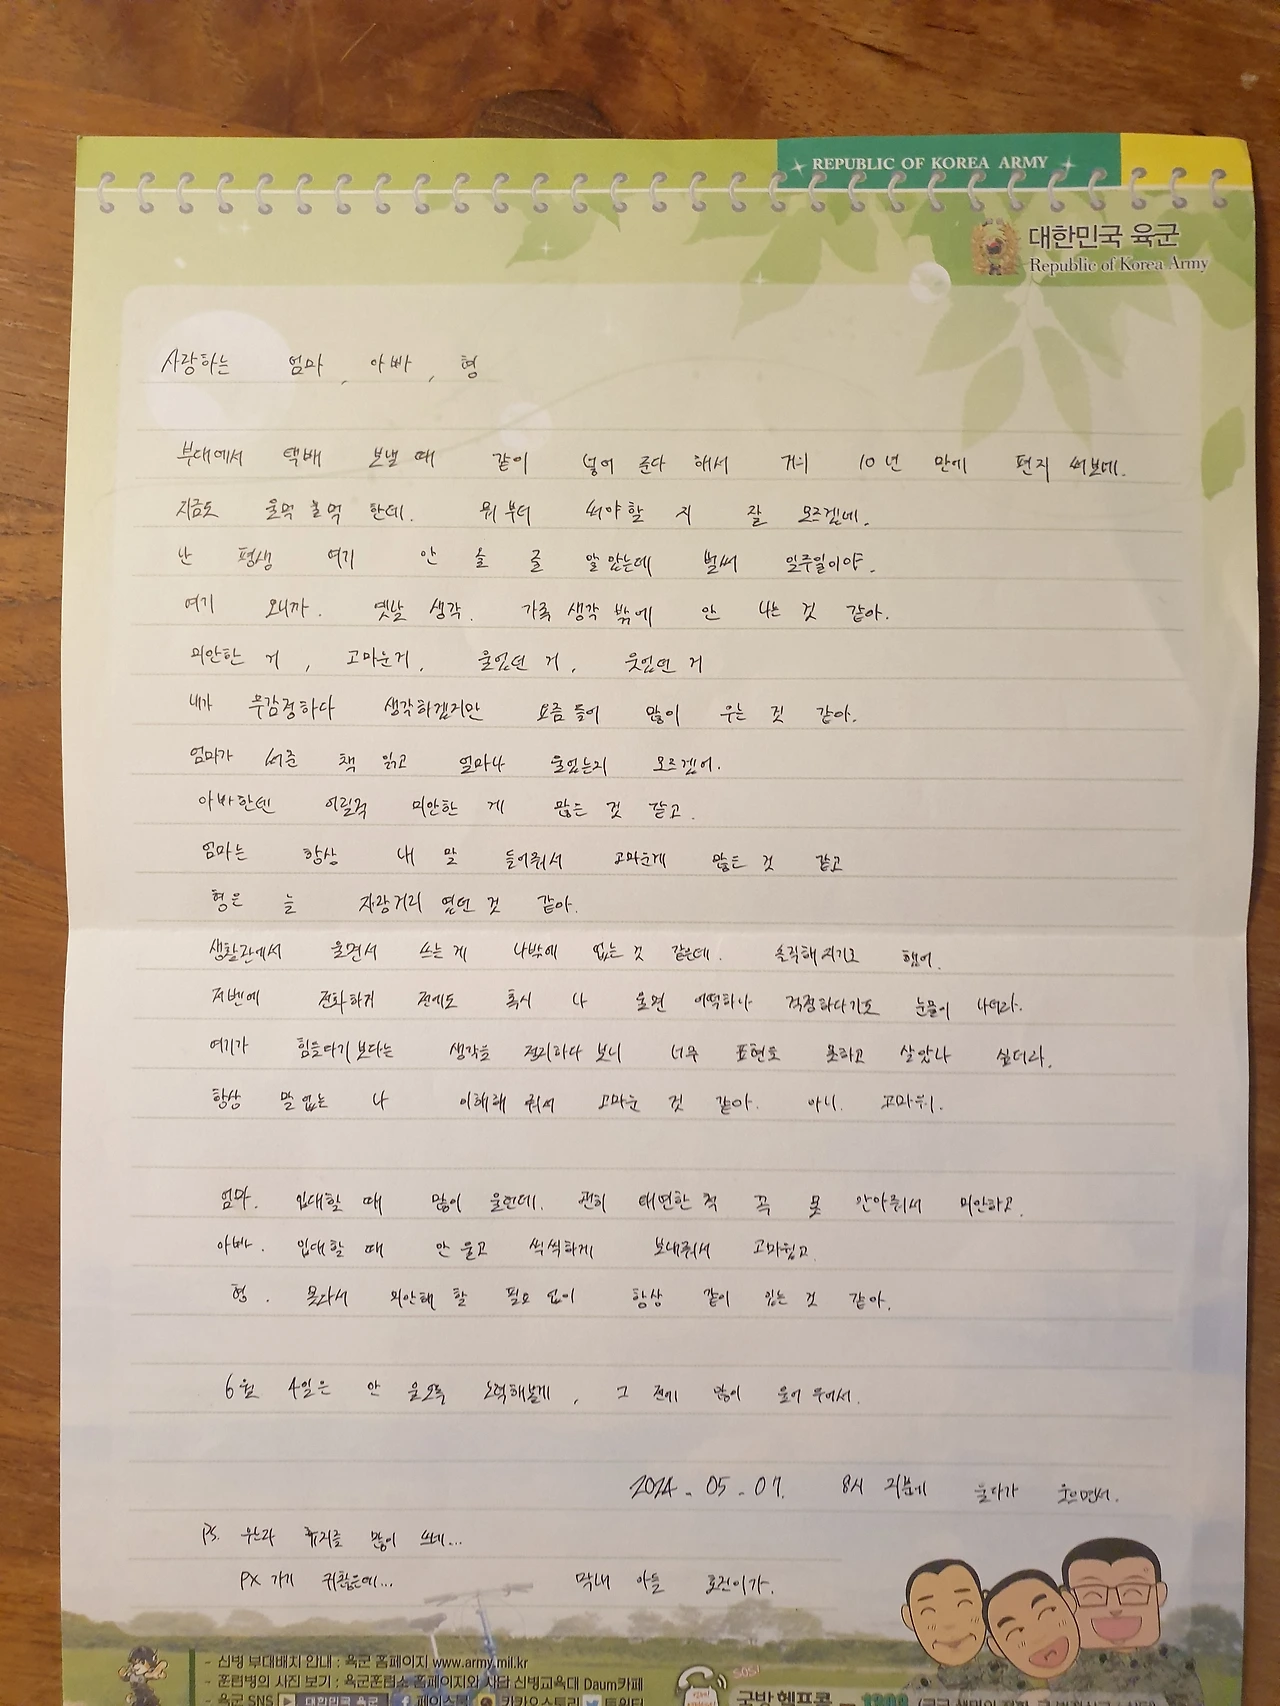 REPUBLIC OF KOREA ARMY
대한민국 육군
Republic of Korea Army
사랑하는 엄마, 아빠, 형
부대에서 택배 보낼 때 같이 넣어 준다 해서 거의 10년 만에 편지 써보네.
지금도 울먹울먹 한데. 뭐부터 써야할 지 잘 모르겠네.
난 평생 여기 안 올 줄 알았는데 벌써 일주일이야.
여기 오니까. 옛날 생각. 가족 생각 밖에 안 나는 것 같아.
미안한 거, 고마운거, 울었던 거, 웃었던 거
내가 무감정하다 생각하겠지만 요즘들어 많이 우는 것 같아.
엄마가 써준 책 읽고 얼마나 울었는지 모르겠어.
아빠한텐 어릴적 미안한 게 많은 것 같고.
엄마는 항상 내 말 들어줘서 고마운게 많은 것 같고
형은 늘 자랑거리 였던 것 같아.
생활관에서 울면서 쓰는 게 나밖에 없는 것 같은데. 솔직해지기로 했어.
저번에 전화하기 전에도 혹시 나 울면 어떡하나 걱정하다가도 눈물이 나더라.
여기가 힘들다기보다는 생각을 정리하다 보니 너무 표현을 못하고 살았나 싶더라.
항상 말 없는 나 이해해 줘서 고마운 것 같아. 아니. 고마워.
엄마. 입대할 때 많이 울던데. 괜히 태연한 척 꼭 못 안아줘서 미안하고.
아빠. 입대할 때 안 울고 씩씩하게 보내줘서 고마웠고.
형. 못와서 미안해 할 필요 없이 항상 같이 있는 것 같아.
6월 4일은 안 울도록 노력해볼게, 그 전에 많이 울어 두어서.
2024. 05. 07. 8시 울다가 웃으면서.
PS. 휴지를 많이 쓰네...
PX 가기 귀찮은데... 막내 아들
- 신병 부대배치 안내 : 육군 홈페이지 www.army.mil.kr
- 훈련병의 사진 보기 : 육군훈련소 홈페이지와 사단 신병교육대 Daum카페
- 육군 SNS 대한민국 육군 페이스북 카카오스토리 트위터
SOS!
국방헬프콜 - 1303